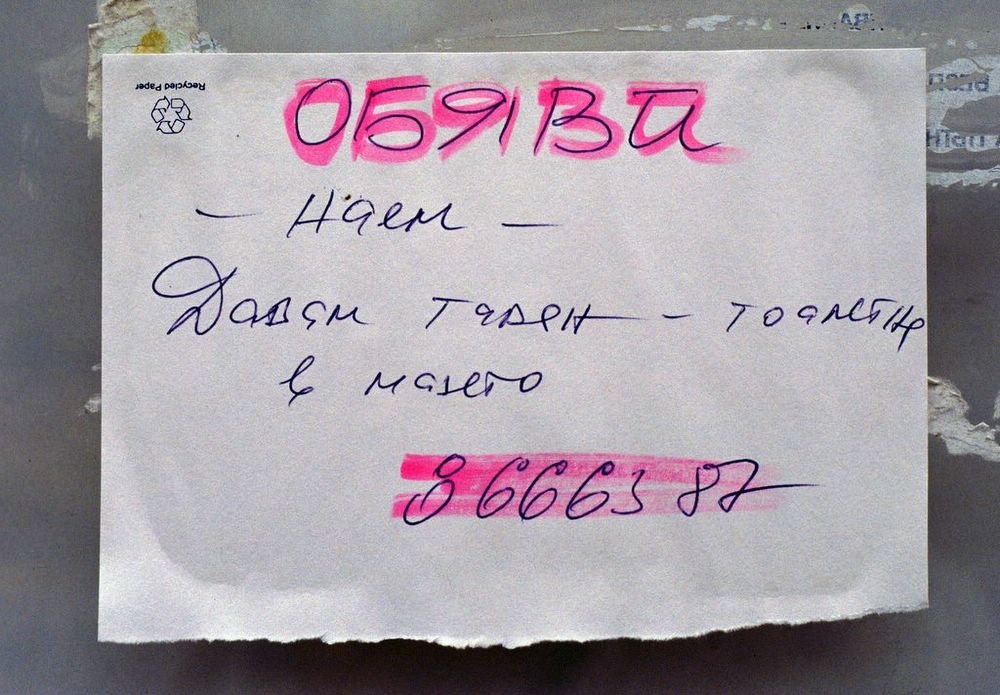 Recycled Paper
ОБЯВА
- Наем -
Давам таван - тоалетна
в мазето
8666387